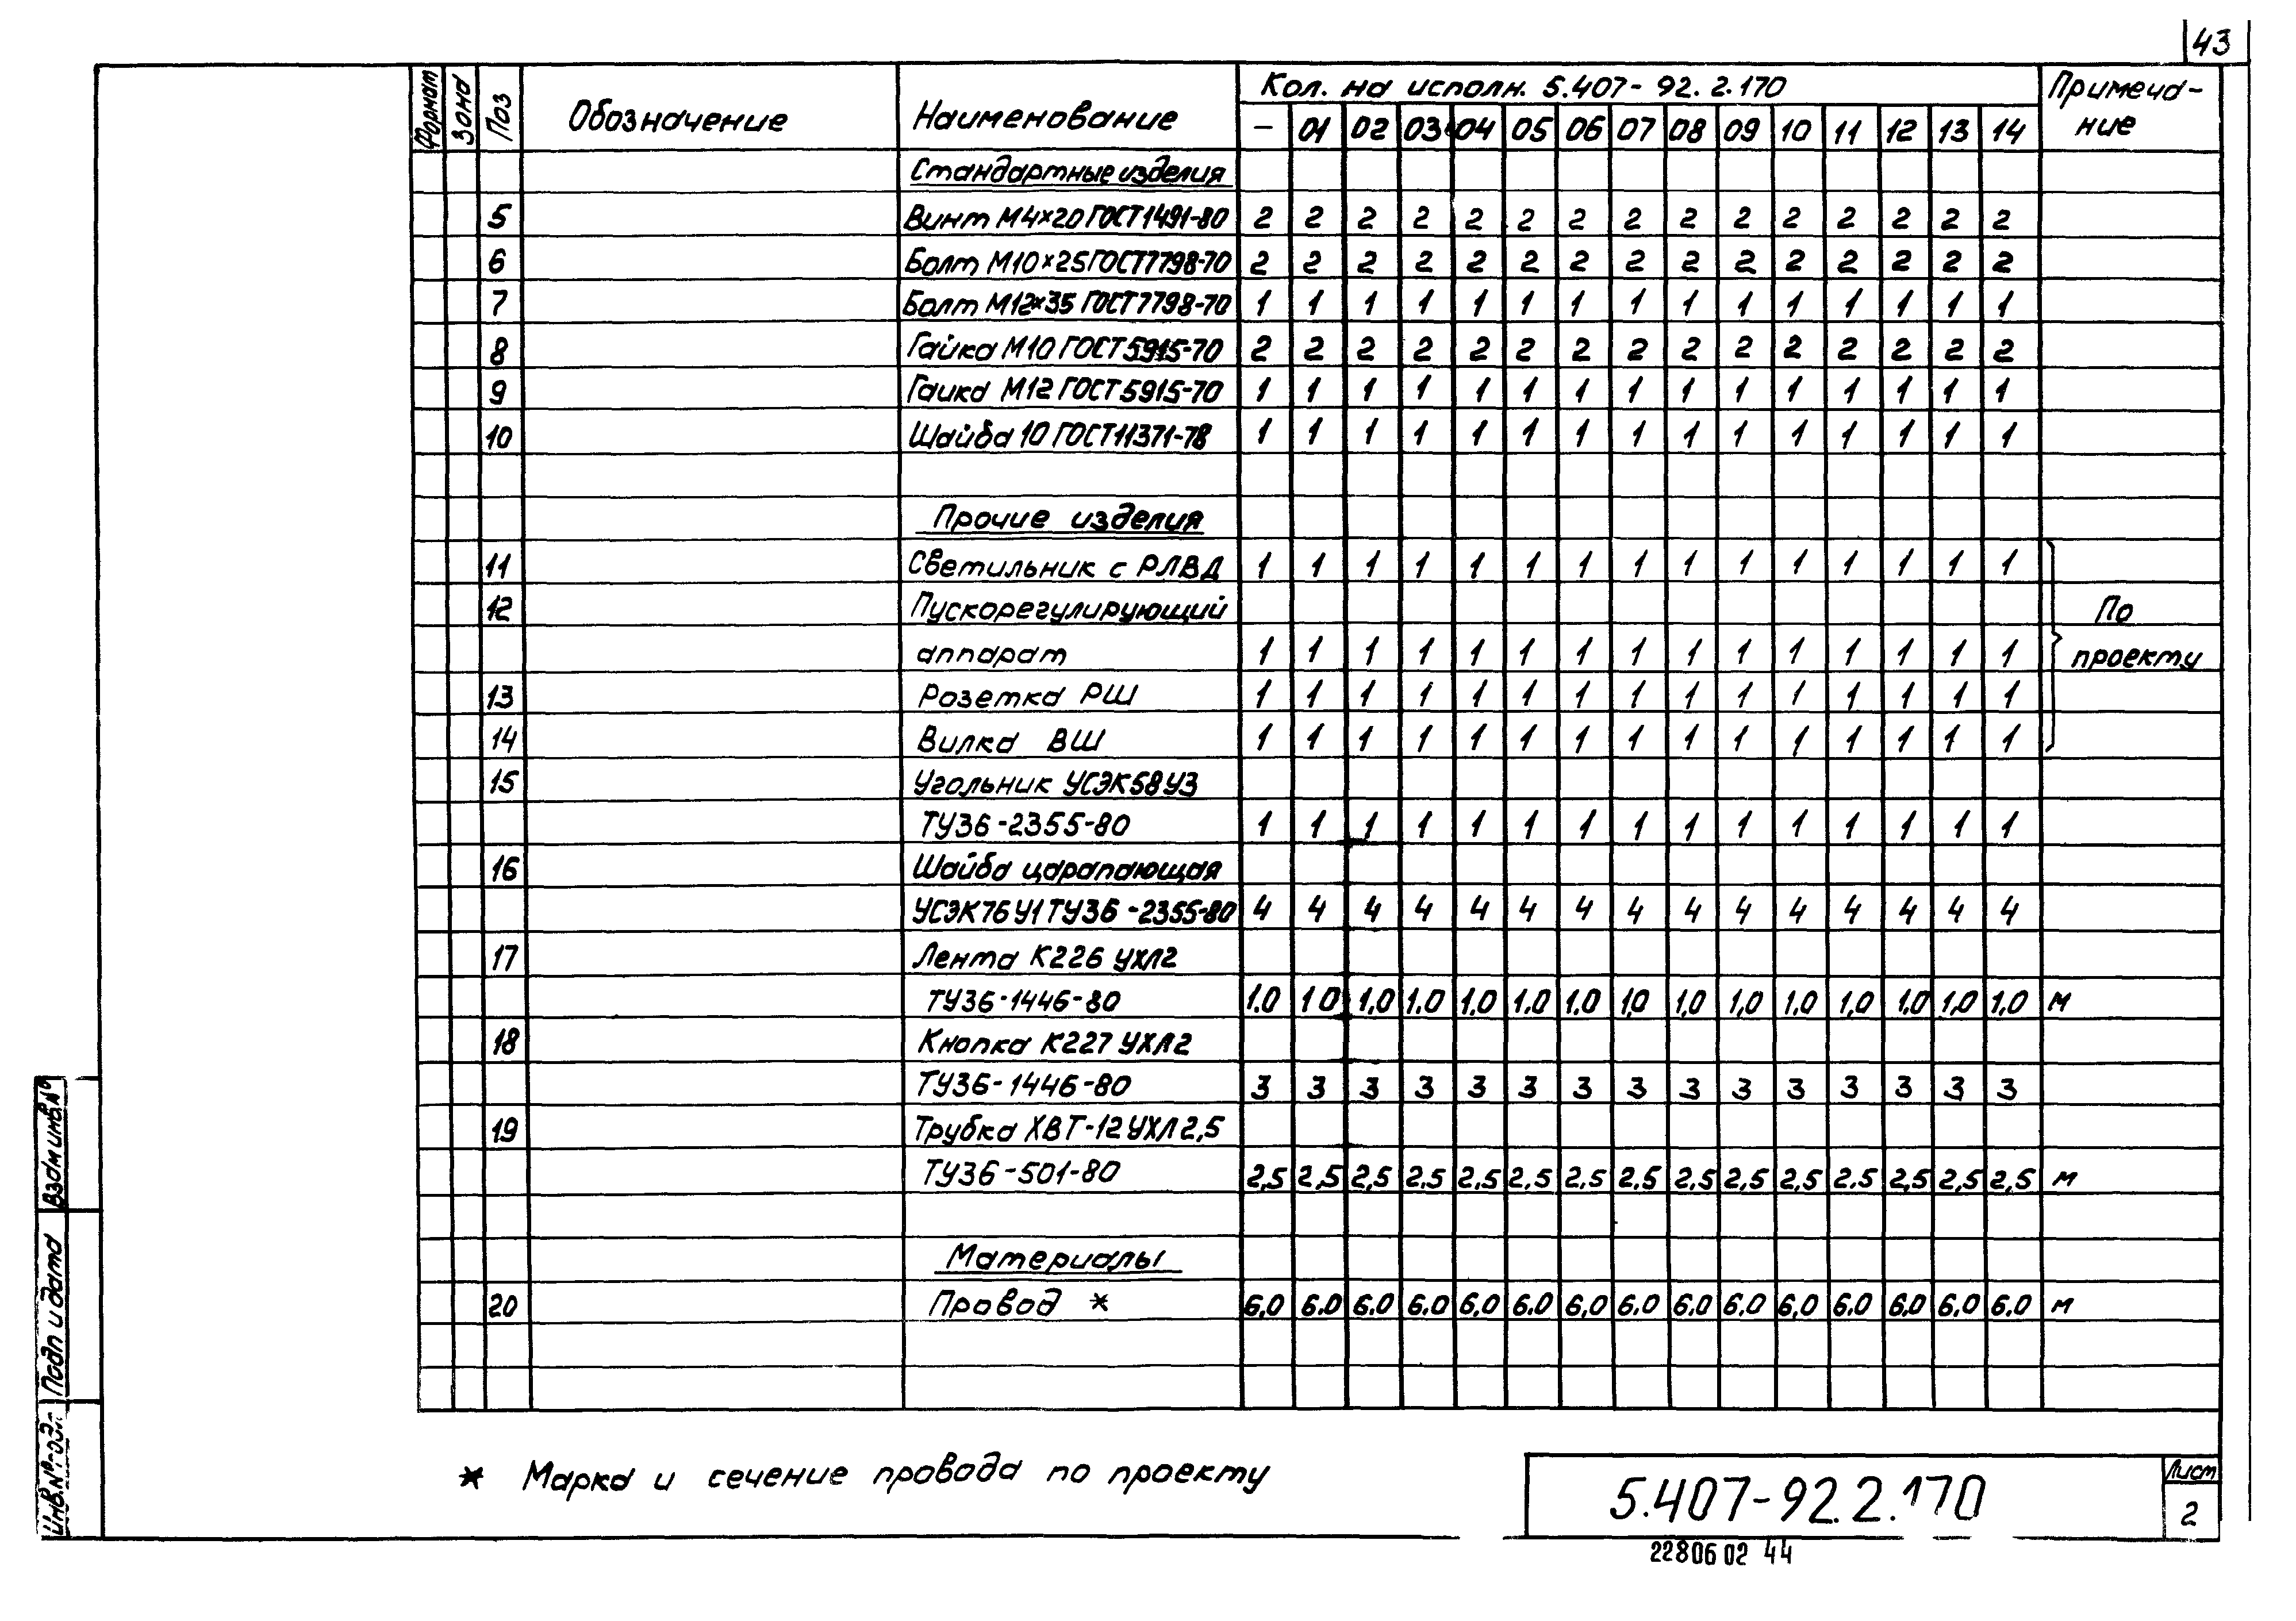 43
Формат Зона Поз Обозначение Наименование Кол. на исполн. 5.407-92.2.170 Примеча-
ние
– 01 02 03 04 05 06 07 08 09 10 11 12 13 14
Стандартные изделия
5 Винт М4×20 ГОСТ 1491-80 2 2 2 2 2 2 2 2 2 2 2 2 2 2 2
6 Болт М10×25 ГОСТ 7798-70 2 2 2 2 2 2 2 2 2 2 2 2 2 2 2
7 Болт М12×35 ГОСТ 7798-70 1 1 1 1 1 1 1 1 1 1 1 1 1 1 1
8 Гайка М10 ГОСТ 5915-70 2 2 2 2 2 2 2 2 2 2 2 2 2 2 2
9 Гаика М12 ГОСТ 5915-70 1 1 1 1 1 1 1 1 1 1 1 1 1 1 1
10 Шайба 10 ГОСТ 11371-78 1 1 1 1 1 1 1 1 1 1 1 1 1 1 1
Прочие изделия
11 Светильник с РЛВД 1 1 1 1 1 1 1 1 1 1 1 1 1 1 1
12 Пускорегулирующий По
аппарат 1 1 1 1 1 1 1 1 1 1 1 1 1 1 1 проекту
13 Розетка РШ 1 1 1 1 1 1 1 1 1 1 1 1 1 1 1
14 Вилка ВШ 1 1 1 1 1 1 1 1 1 1 1 1 1 1 1
15 Угольник УСЭК58У3
ТУ36-2355-80 1 1 1 1 1 1 1 1 1 1 1 1 1 1 1
16 Шайба царапающая
УСЭК76У1 ТУ36-2355-80 4 4 4 4 4 4 4 4 4 4 4 4 4 4 4
17 Лента К226 УХЛ2
ТУ36-1446-80 1.0 1 0 1,0 1.0 1.0 1.0 1.0 1,0 1,0 1,0 1.0 1,0 1.0 1,0 1,0 м
18 Кнопка К227 УХЛ2
ТУ36-1446-80 3 3 3 3 3 3 3 3 3 3 3 3 3 3 3
19 Трубка ХВТ-12 УХЛ 2,5
ТУ36-501-80 2,5 2,5 2,5 2.5 2.5 2.5 2.5 2.5 2.5 2,5 2,5 2.5 2,5 2,5 2,5 м
Материалы
20 Провод * 6.0 6.0 6.0 6.0 6,0 6.0 6,0 6.0 6.0 6.0 6,0 6.0 6.0 6.0 6.0 м
* Марка и сечение провода по проекту
5.407-92.2.170
Лист
2
22806 02 44
Взам инв №
Подп и дата
Инв. №